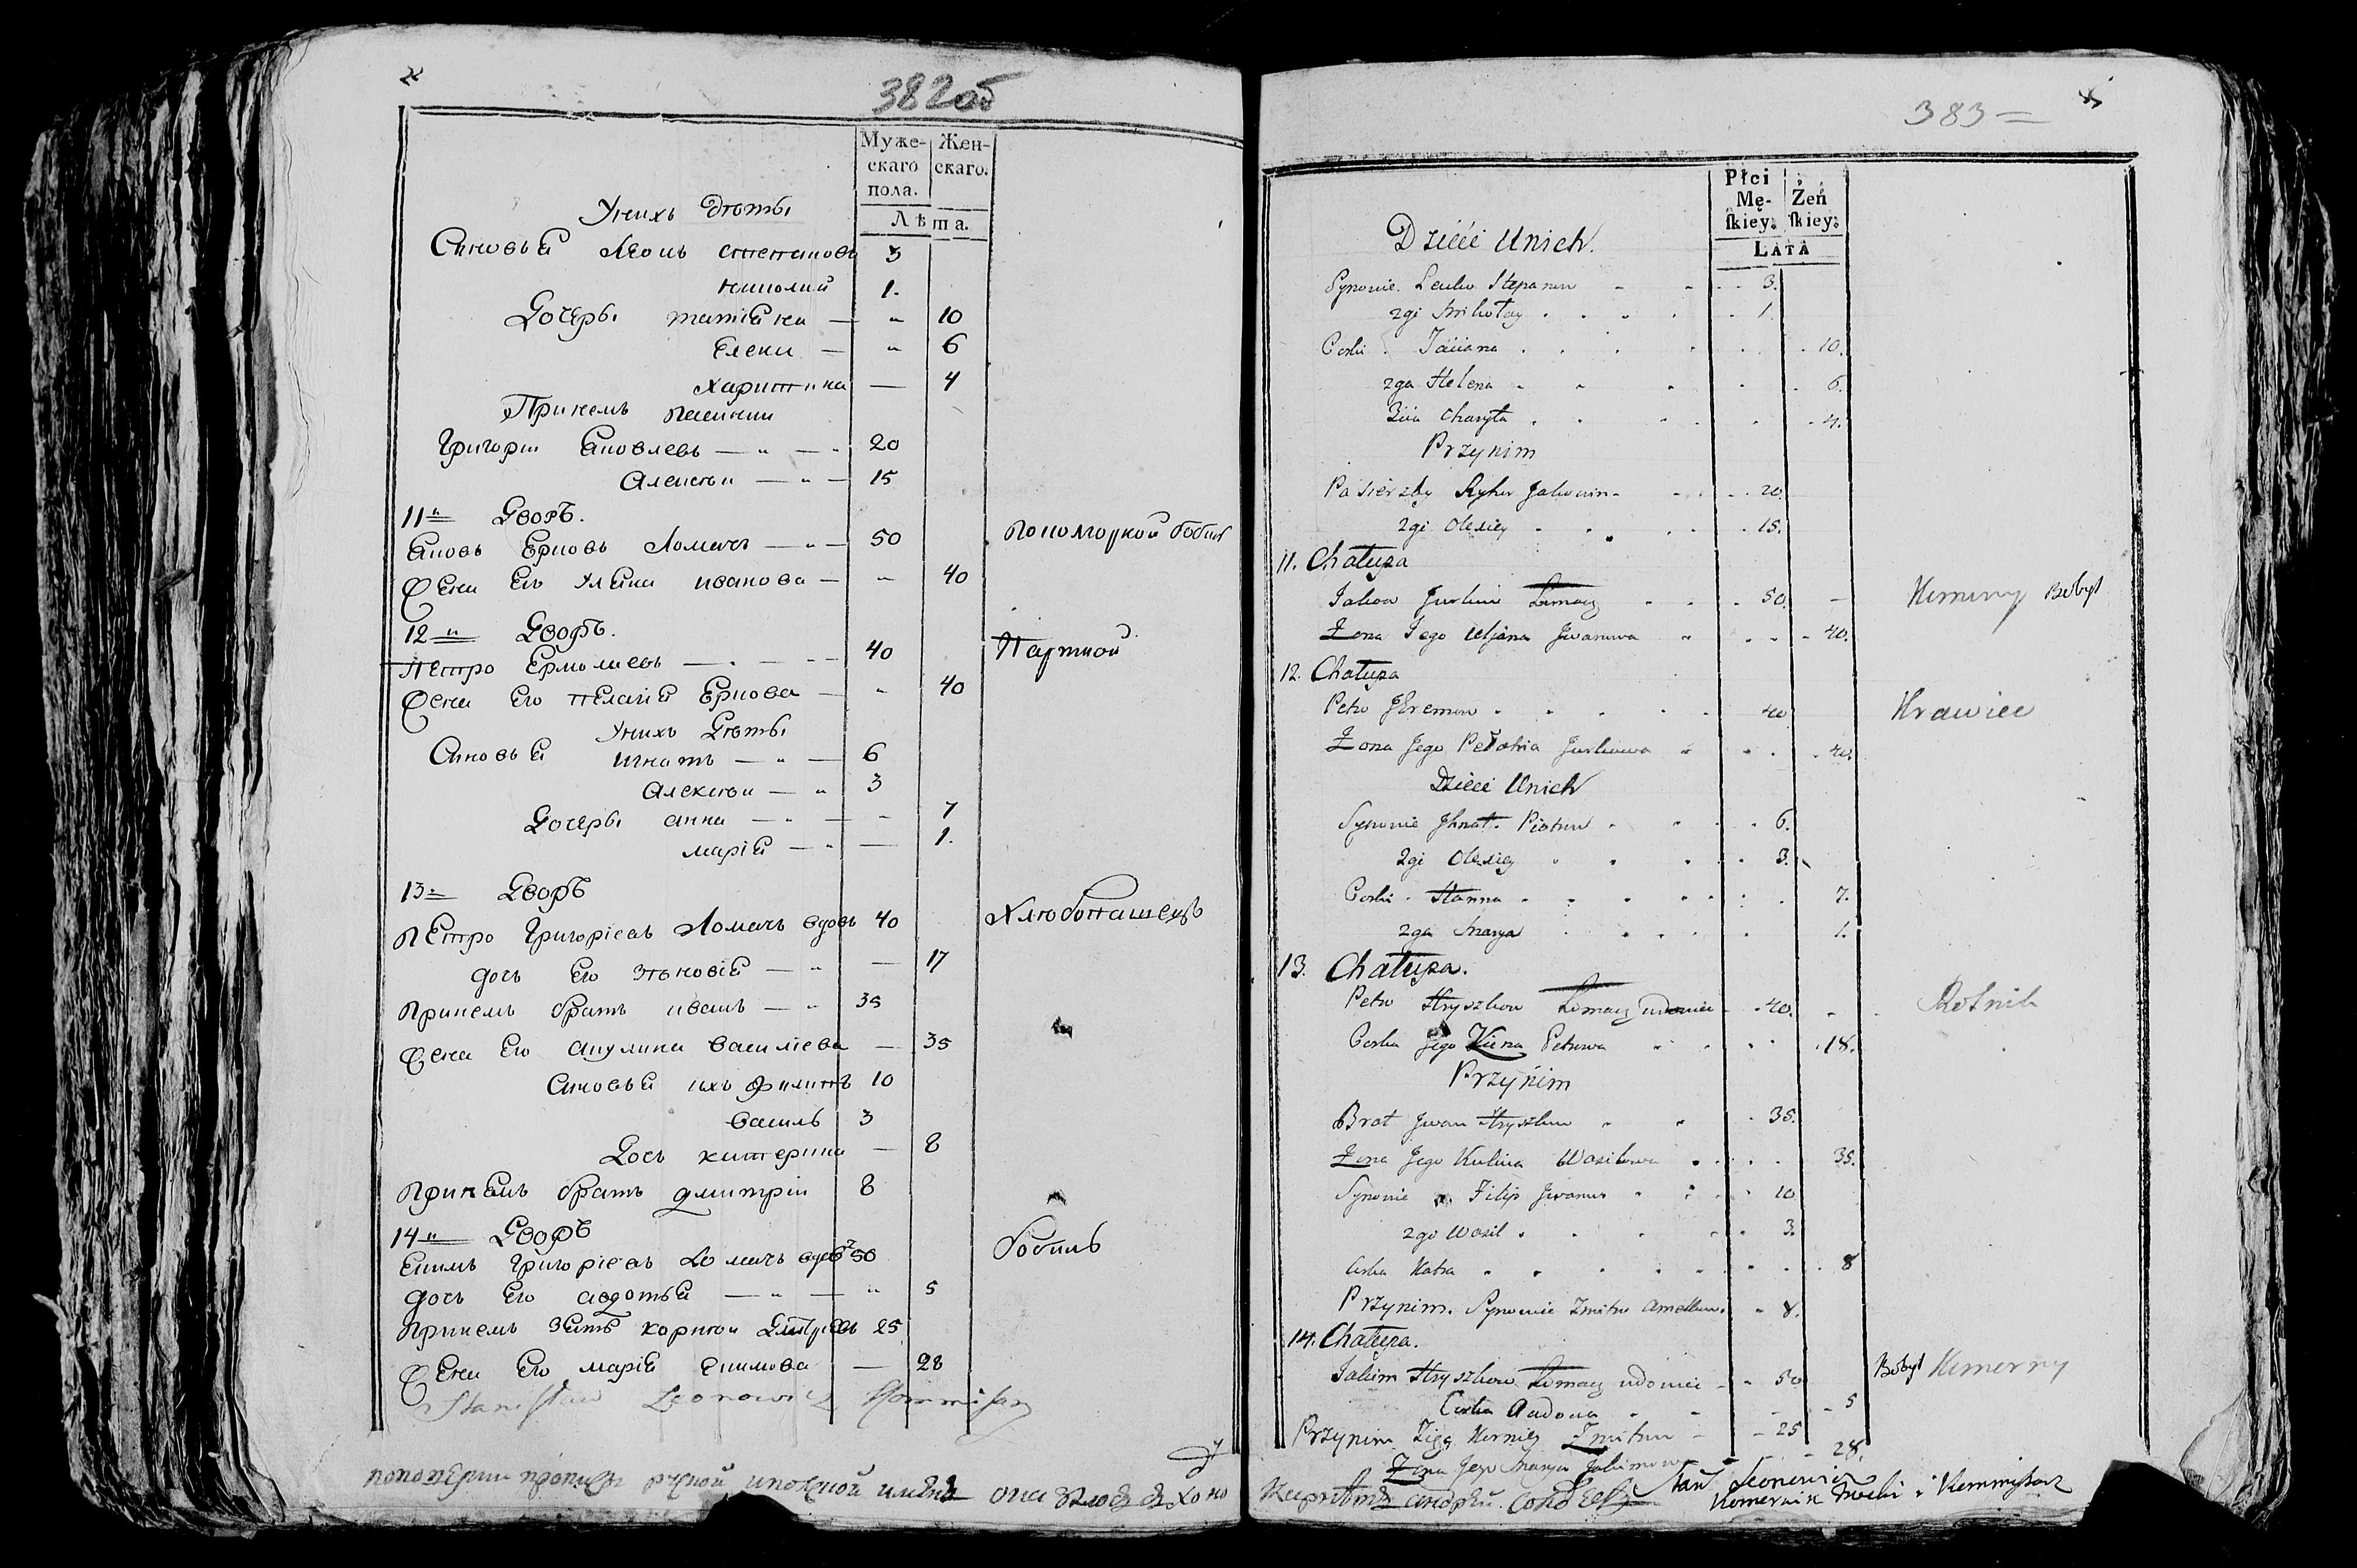 382об
Муже-
скаго
пола.
Жен-
скаго.
Лѣта.
Унихъ Дѣти
Синовья Леонъ степановъ 3
николай 1.
Дочери татіяна — „ 10
Елена — „ 6
Харитина — 4
Принемъ пасинки
Григории Яковлевъ — „ — 20
Алексѣи — „ — 15
11„ Дворъ.
Яковъ Юрковъ Ломачъ — „ — 50 бобиль
Жена Его Уляна иванова — „ 40
12„ Дворъ.
Петро Ермолаевъ — 40 Партной
Жена Его пелагія Юркова — „ 40
Унихъ Дѣти
Синовья игнатъ — „ — 6
Алексѣи — „ 3
Дочери анна — „ — 7
марія — „ — 1.
13„ Дворъ
Петро Григоріевъ Ломачъ вдовъ 40 Хлюбопашецъ
дочъ Его Зѣновія — „ — 17
Принемъ братъ иванъ — „ 35
Жена Его акулина василіева — 35
Синовья ихъ филипъ 10
василь 3
Дочъ катерина — 8
Принемъ братъ дмитріи 8
14„ Дворъ
Екимъ Григоріевъ Ломачъ вдовъ 50 бобиль
дочъ Его авдотья — „ — „ 5
Принемъ Зять корнѣи Дмитріевъ 25
Жена Его марія Екимова — 28
Stanisław Leonowicz Kommisarz
383
Płci
Mę-
skiey.
Żeń
skiey.
LATA
Dzieci Unich.
Synowie. Leuko Stepanow 3.
2gi Mikołay 1.
Corki Taciana 10.
2ga Helena 6.
3cia Charyta 4.
Przynim
Pasierzby Ryhor Jakowin 20.
2gi Olexiey 15.
11. Chałupa
Jakow Jurkow Łomacz 50. Komorny Bobyl
Żona Jego Uljana Jwanowa 40.
12. Chałupa
Petro Jeremow 40 Krawiec
Żona Jego Pełahia Jurkowa 40.
Dzieci Unich
Synowie Jhnat Piotrow 6.
2gi Olexiey 3.
Corki Hanna 7.
2ga Marya 1.
13. Chałupa.
Petro Hryszkow Łomacz udowiec 40. Rolnik
Corka Jego Ziena Petrowa 18.
Przynim
Brat Jwan Hryszkow 35.
Żona Jego Kulina Wasilowa 35.
Synowie Filip Jwanow 10
2go Wasil 3.
Corka Katra 8
Przynim. Synowie Zmitro 8.
14. Chałupa.
Jakim Hryszkow Łomacz udowiec 50 Bobyl Komorny
Corka Audocia 5
Przynim Zięć Korniey Zmitrow 25
Żona Jego Marya Jakimowa 28.
Stan Leonowicz
Komornik i Kommisarz